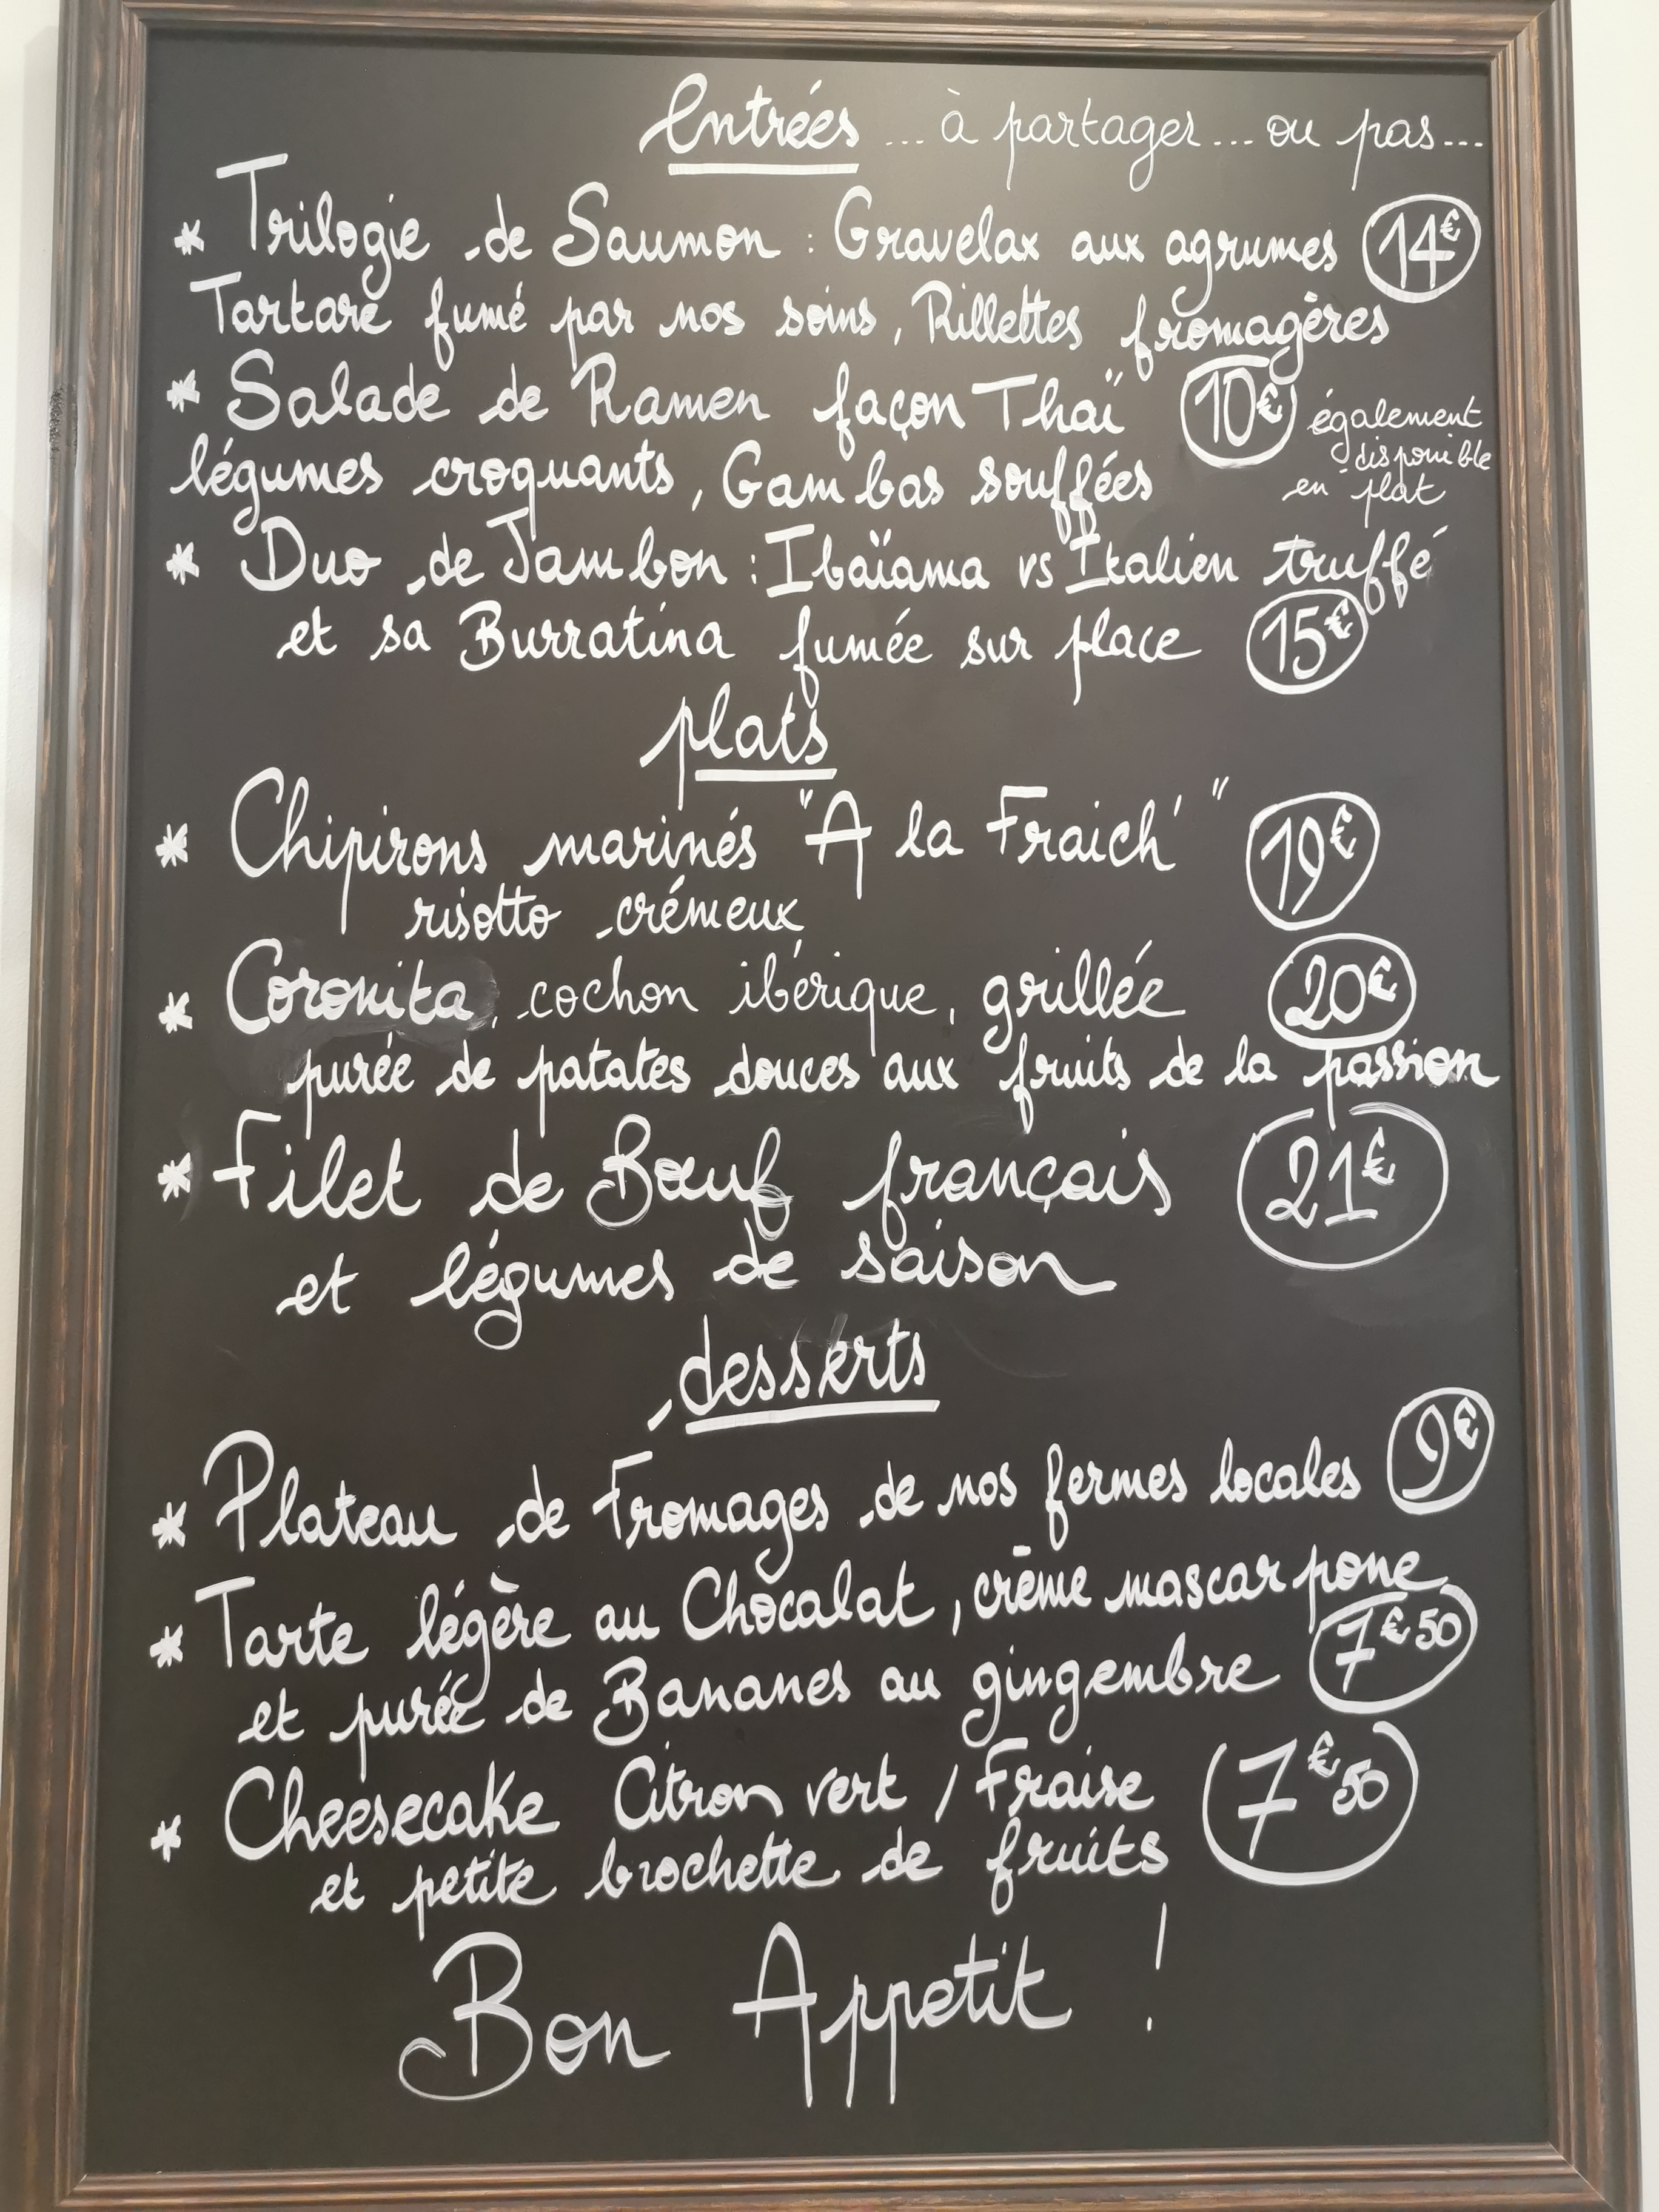 Entrées ... à partager ... ou pas ...
* Trilogie de Saumon : Gravelax aux agrumes 14€
Tartare fumé par nos soins, Rillettes fromagères
* Salade de Ramen façon Thaï 10€ également
disponible
légumes croquants, Gambas soufflées en plat
* Duo de Jambon : Ibaïama vs Italien truffé
et sa Burratina fumée sur place 15€
plats
* Chipirons marinés "A la Fraich'" 19€
risotto crémeux
* Coronita, cochon ibérique, grillée 20€
purée de patates douces aux fruits de la passion
* Filet de Bœuf français 21€
et légumes de saison
desserts
* Plateau de Fromages de nos fermes locales 9€
* Tarte légère au Chocolat, crème mascarpone
et purée de Bananes au gingembre 7€50
* Cheesecake Citron vert / Fraise 7€50
et petite brochette de fruits
Bon Appetit !